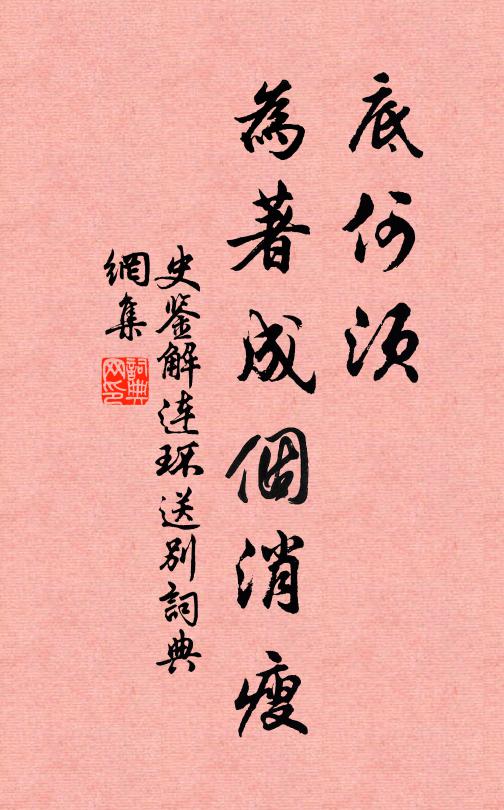 底何須
為著成個消瘦
史鉴解連环送别詞典
網集
詞典
网印